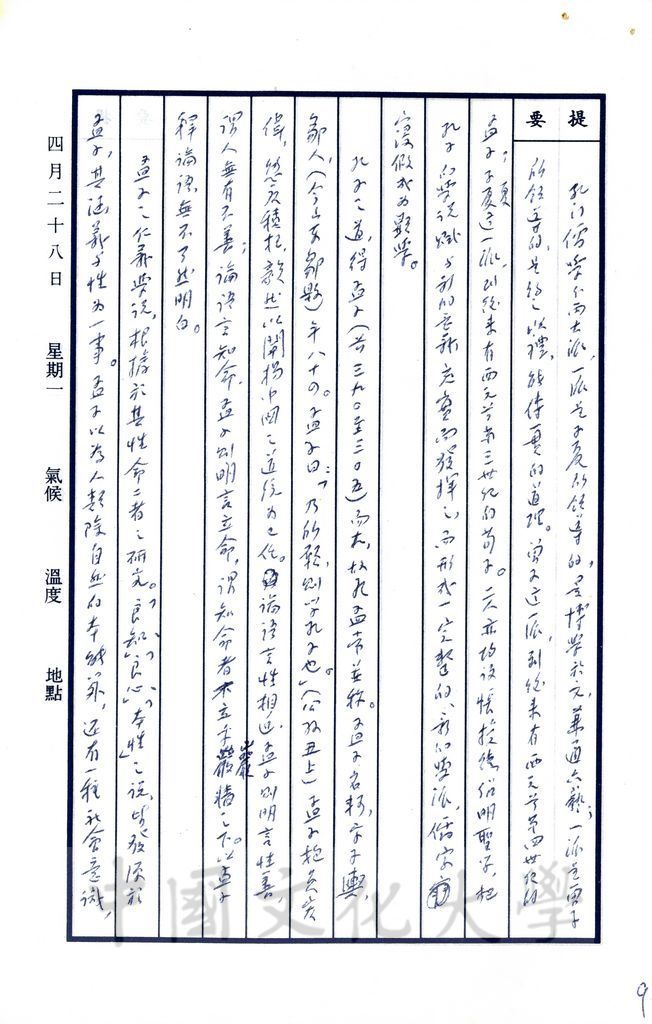 提
要
孔門儒學分兩大派,一派是子夏所領導的,是博學於文,兼通六藝;一派是曾子
所領導的,是約之以禮,能傳一貫的道理。曾子這一派,到後來有西元前第四世紀的
孟子;子夏這一派,到後來有西元前第三世紀的荀子。二人亦均設帳授徒,紹明聖學,把
孔子的學說賦予新的意新充實而發揮之,而形成一完整的、新的學派,儒家
寖假成為顯學。
孔子之道,得孟子(前三九〇至三〇五)而大,故孔孟常並稱。孟子名軻,字子輿,
鄒人,(今山東鄒縣)年八十四。孟子曰:「乃所願,則學孔子也。」(公孫丑上)孟子抱負宏
偉,慾度積極,毅然以闡揚中國之道統為己任。論語言性相近,孟子則明言性善,
謂人無有不善;論語言知命,孟子則明言立命,謂知命者不立乎巖牆之下。以孟子
釋論語,無不了然明白。
孟子之仁義學說,根據於其性命二者之研究。「良知」「良心」「本性」之說,皆發源於
孟子,其涵義與性為一事。孟子以為人類除自然的本能外,還有一種社會意識,
四月二十八日 星期一 氣候 溫度 地點
中國文化大學
9